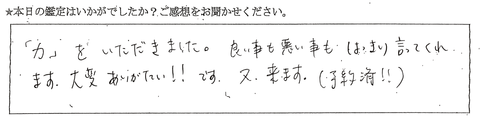 ★本日の鑑定はいかがでしたか?ご感想をお聞かせください。
「力」をいただきました。良い事も悪い事もはっきり言ってくれ
ます。大変ありがたい!!です。又、来ます。(予約済!!)